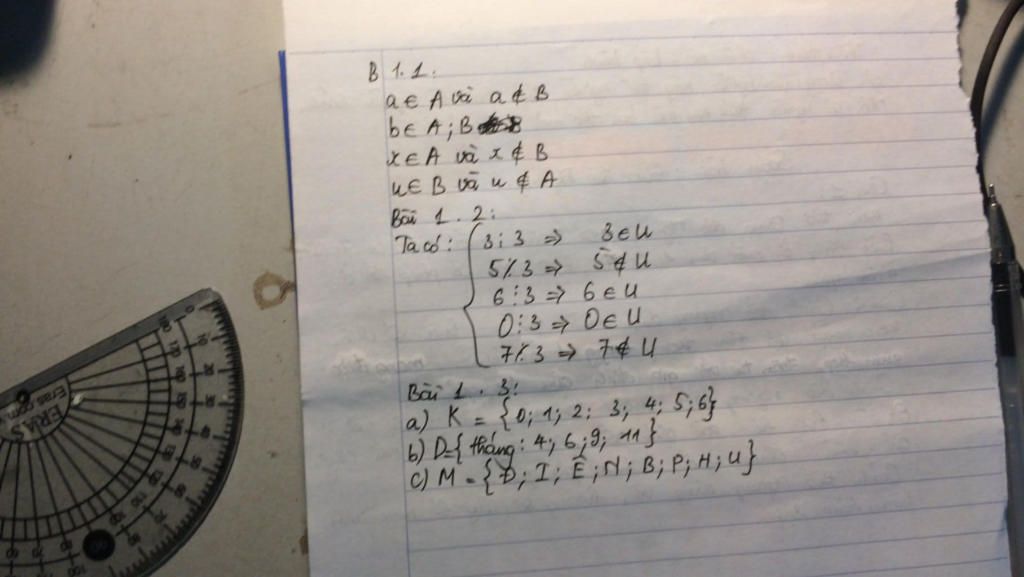 B 1.1:
a ∈ A và a ∉ B
b ∈ A; B
x ∈ A và x ∉ B
u ∈ B và u ∉ A
Bài 1.2:
Ta có: { 3 ⋮ 3 => 3 ∈ U
5 ⋮̸ 3 => 5 ∉ U
6 ⋮ 3 => 6 ∈ U
0 ⋮ 3 => 0 ∈ U
7 ⋮̸ 3 => 7 ∉ U
Bài 1.3:
a) K = {0; 1; 2; 3; 4; 5; 6}
b) D = {tháng: 4; 6; 9; 11}
c) M = {Đ; I; Ê; N; B; P; H; U}